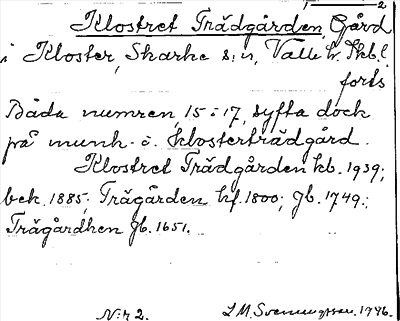 2
Klostret Trädgården, Gård
i Kloster, Skarke s:n, Valle hr, Skb. l
forts
Båda numren, 15 o 17, syfta dock
på munk- o. klosterträdgård.
Klostret Trädgården kb. 1939;
bek. 1885; Trägården hf. 1800; jb. 1749.;
Trägårdhen jb. 1651.
N:r 2. L M. Svenungsson. 1946.